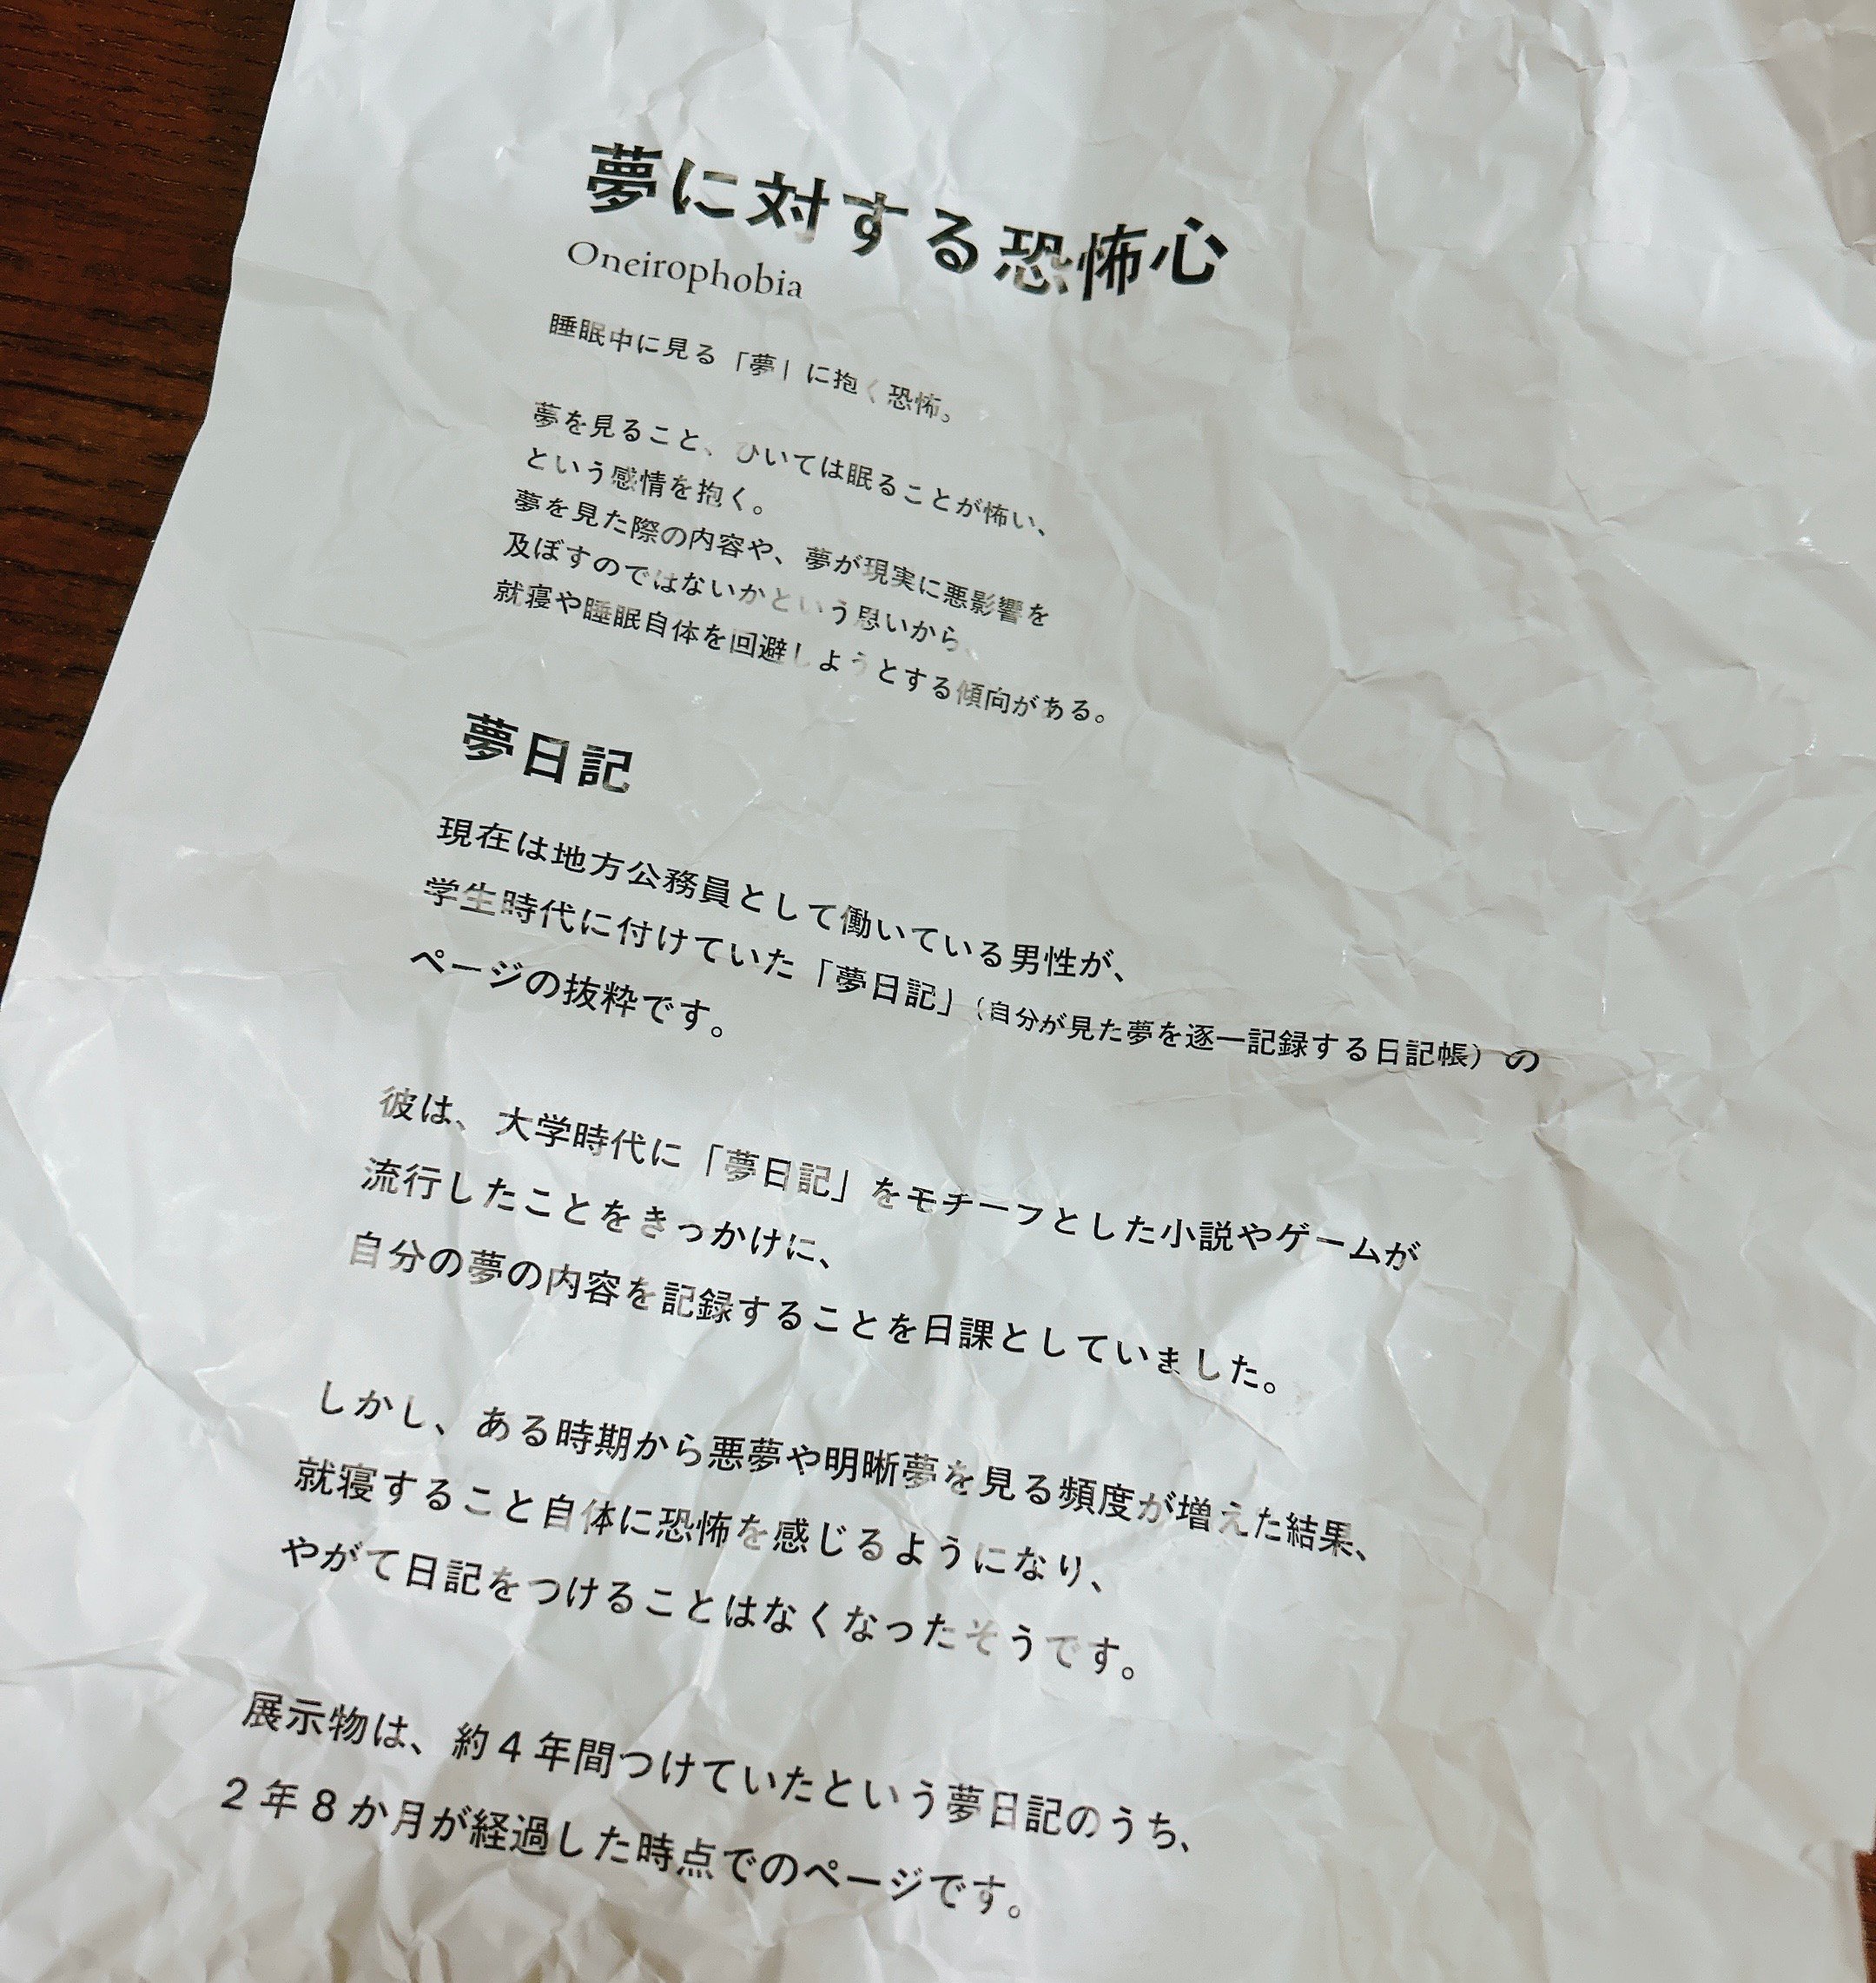 夢に対する恐怖心
Oneirophobia
睡眠中に見る「夢」に抱く恐怖。
夢を見ること、ひいては眠ることが怖い、
という感情を抱く。
夢を見た際の内容や、夢が現実に悪影響を
及ぼすのではないかという思いから、
就寝や睡眠自体を回避しようとする傾向がある。
夢日記
現在は地方公務員として働いている男性が、
学生時代に付けていた「夢日記」（自分が見た夢を逐一記録する日記帳）の
ページの抜粋です。
彼は、大学時代に「夢日記」をモチーフとした小説やゲームが
流行したことをきっかけに、
自分の夢の内容を記録することを日課としていました。
しかし、ある時期から悪夢や明晰夢を見る頻度が増えた結果、
就寝すること自体に恐怖を感じるようになり、
やがて日記をつけることはなくなったそうです。
展示物は、約4年間つけていたという夢日記のうち、
2年8か月が経過した時点でのページです。